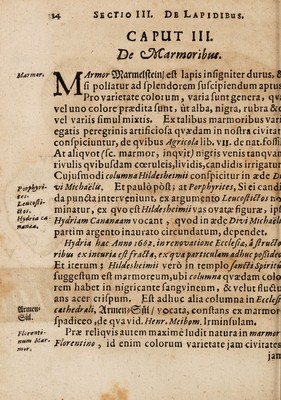 24 SECTIO III. DE LAPIDIBUS.
CAPUT III.
De Marmoribus.
Marmor.
MArmor Marmelstein/ est lapis insigniter durus, &
si poliatur ad splendorem suscipiendum aptus
Pro varietate colorum, varia sunt genera, qu
vel uno colore prædita sunt, ut alba, nigra, rubra &
vel variis simul mixtis. Ex talibus marmoribus vari
egatis peregrinis artificiosa quædam in nostra civitat
conspiciuntur, de quibus Agricola lib. vII. de nat. fossi
At aliqvot (sc. marmor, inqvit) nigris venis tanqvam
rivulis qvibusdam cœruleis, lividis, candidis irrigatur
Cujusmodi columna Hildesheimii conspicitur in æde D
vi Michaëlis. Et paulò pòst; at Porphyrites, Si ei candi
Porphyri-
tes.
Leucosti-
ctos.
Hydria ca-
nanæa.
da puncta interveniunt, ex argumento Leucostictos no
minatur, ex qvo est Hildesheimii vas ovatæ figuræ, ips
Hydriam Cananæam vocant, qvod in æde Divi Michaëli
partim argento inaurato circundatum, dependet.
Hydria hac Anno 1662. in renovatione Ecclesiæ, à structo
ribus ex incuria est fracta, ex qua particulam adhuc possideo
Et iterum; Hildesheimii verò in templo sancto Spiritu
suggestum est in marmoreum, ubi columna quædam colo
rem habet in nigricante sangvineum, & velut fluctu
ans acer crispum. Est adhuc alia columna in Ecclesi
Armen-
Säl.
cathedrali, Armen-Säl/ vocata, constans ex marmor
spadiceo, de qva vid. Henr. Meibom. Irminsulam.
Florenti-
num Mar-
mor.
Præ reliqvis autem maximè ludit natura in marmor
Florentino, id enim colorum varietate jam civitates
jam